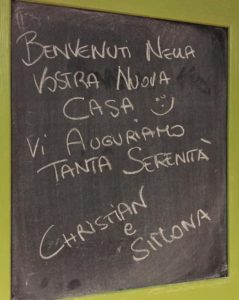 BENVENUTI NELLA
VOSTRA NUOVA
CASA
VI AUGURIAMO
TANTA SERENITÀ
CHRISTIAN
e
SIMONA